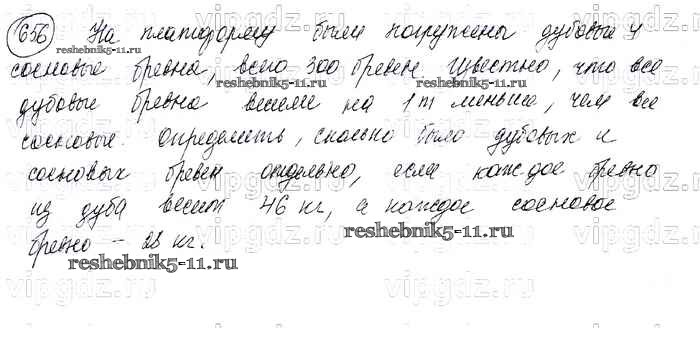 656 На платформу были погружены дубовые и
reshebnik5-11.ru
сосновые бревна, всего 300 бревен. Известно, что все
reshebnik5-11.ru
дубовые бревна весили на 1т меньше, чем все
сосновые. Определить, сколько было дубовых и
сосновых бревен отдельно, если каждое бревно
из дуба весит 46 кг, а каждое сосновое
reshebnik5-11.ru
бревно – 28 кг.
reshebnik5-11.ru
vipgdz.ru